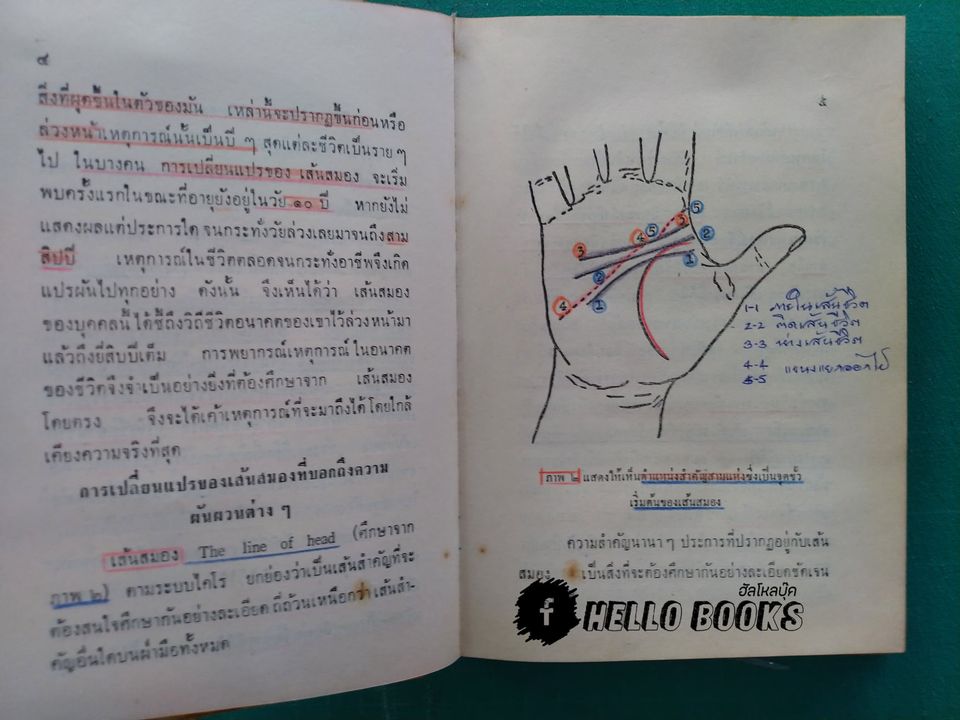 ๔
สิ่งที่ผุดขึ้นในตัวของมัน เหล่านี้จะปรากฏขึ้นก่อนหรือ
ล่วงหน้าเหตุการณ์นั้นเป็นปี ๆ สุดแต่ละชีวิตเป็นราย ๆ
ไป ในบางคน การเปลี่ยนแปรของ เส้นสมอง จะเริ่ม
พบครั้งแรกในขณะที่อายุยังอยู่ในวัย ๑๐ ปี หากยังไม่
แสดงผลแต่ประการใด จนกระทั่งวัยล่วงเลยมาจนถึงสาม
สิบปี เหตุการณ์ในชีวิตตลอดจนกระทั่งอาชีพจึงเกิด
แปรผันไปทุกอย่าง ดังนั้น จึงเห็นได้ว่า เส้นสมอง
ของบุคคลนี้ ได้ชี้ถึงวิถีชีวิตอนาคตของเขาไว้ล่วงหน้ามา
แล้วถึงยี่สิบปีเต็ม การพยากรณ์เหตุการณ์ ในอนาคต
ของชีวิตจึงจำเป็นอย่างยิ่งที่ต้องศึกษาจาก เส้นสมอง
โดยตรง จึงจะได้เค้าเหตุการณ์ที่จะมาถึงได้ โดยใกล้
เคียงความจริงที่สุด
การเปลี่ยนแปรของเส้นสมองที่บอกถึงความ
ผันผวนต่าง ๆ
เส้นสมอง The line of head (ศึกษาจาก
ภาพ ๒) ตามระบบไคโร ยกย่องว่าเป็นเส้นสำคัญที่จะ
ต้องสนใจศึกษากันอย่างละเอียด ถี่ถ้วนเหนือกว่า เส้นสำ-
คัญอื่นใดบนฝ่ามือทั้งหมด
๕
5
3
5
4
2
3
2
1
4
1
1-1 ภายในเส้นชีวิต
2-2 ติดเส้นชีวิต
3-3 ห่างเส้นชีวิต
4-4
5-5 แขนงแยกออกไป
ภาพ ๒ แสดงให้เห็นตำแหน่งสำคัญสามแห่งซึ่งเป็นจุดขั้ว
เริ่มต้นของเส้นสมอง
ความสำคัญนานา ๆ ประการที่ปรากฏอยู่กับเส้น
สมอง เป็นสิ่งที่จะต้องศึกษากันอย่างละเอียดชัดเจน
ฮัลโหลบุ๊ค
f HELLO BOOKS